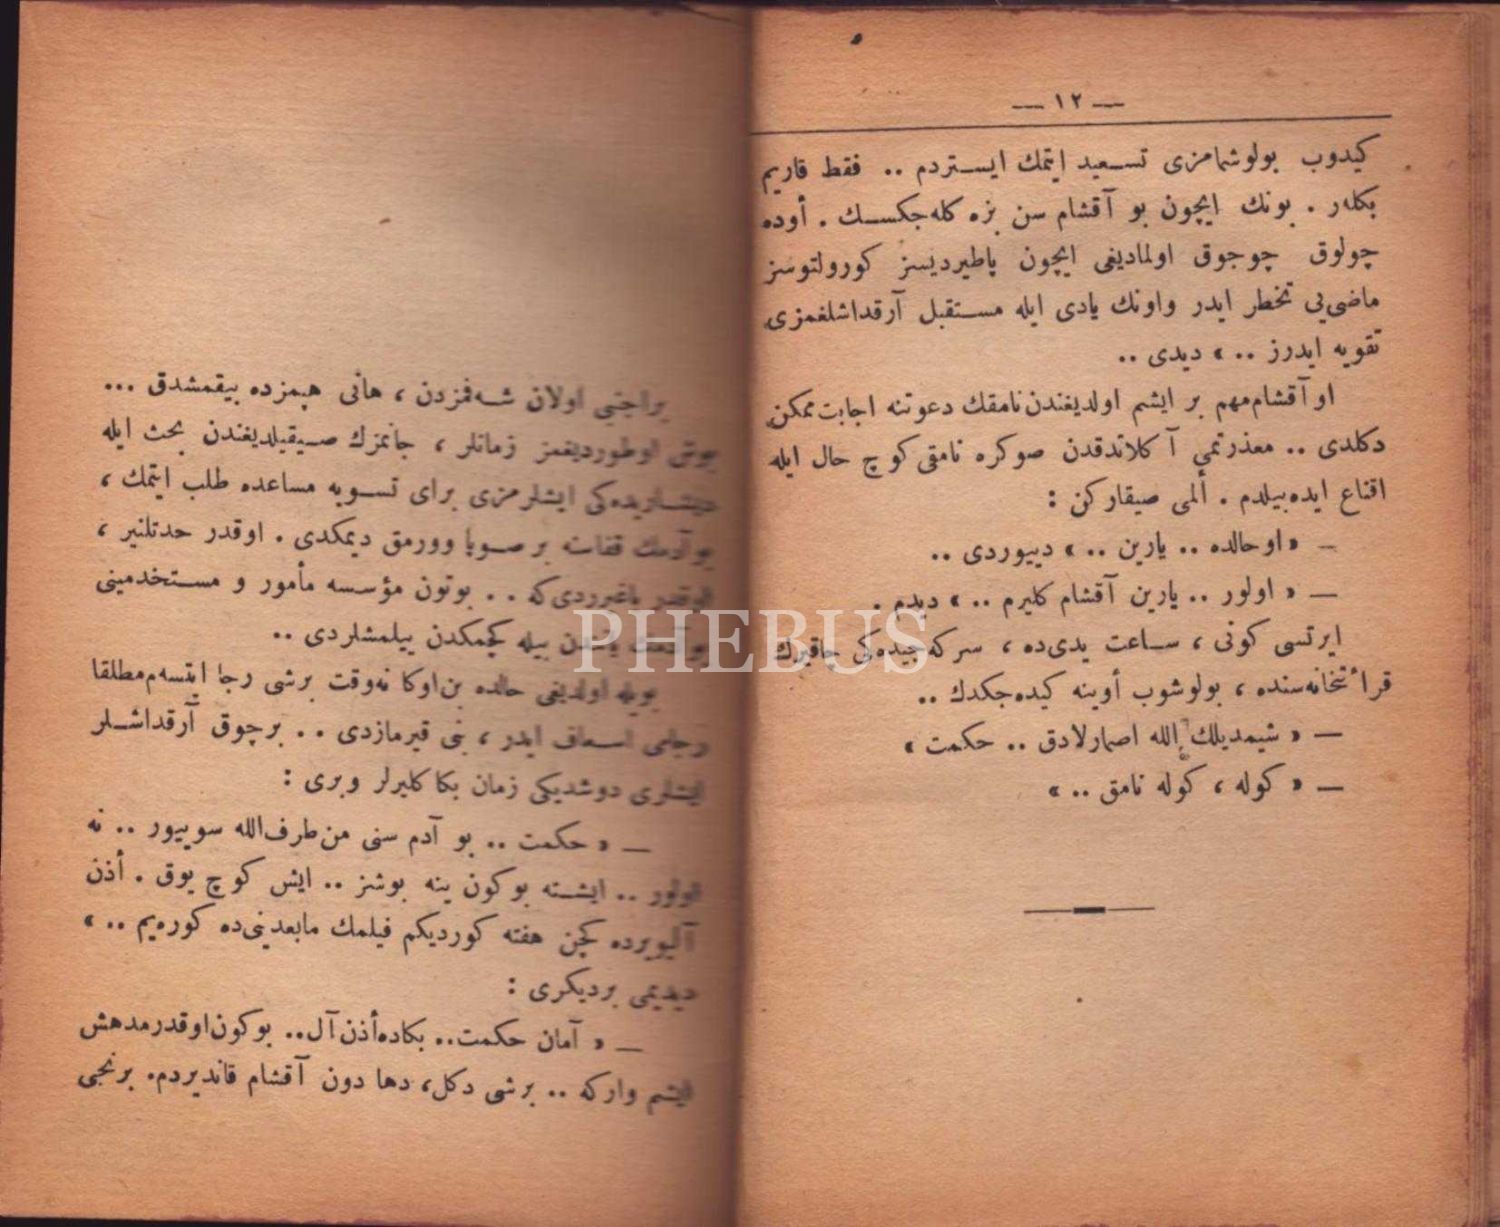 — ١٢ —
كیدوب بولوشمامزی تسعید ایتمك ایستردم .. فقط قاریم
بكله‌ر . بونك ایچون بو آقشام سن بزه كله‌جكسك . أوده
چولوق چوجوق اولمادیغی ایچون پاطیردیسز كورولتوسز
ماضی‌یی تخطر ایدر واونك یادی ایله مستقبل آرقداشلغمزی
تقویه ایدرز .. » دیدی ..
او آقشام مهم بر ایشم اولدیغندن نامقك دعوتنه اجابت ممكن
دكلدی .. معذرتمی آ كلاتدقدن صوكره نامقی كوچ حال ایله
اقناع ایده‌بیلدم . ألمی صیقاركن :
— « اوحالده .. یارین .. » دییوردی ..
— « اولور .. یارین آقشام كلیرم .. » دیدم .
ایرتسی كونی ، ساعت یدی‌ده ، سركه‌جیده‌كی چاقیرك
قرأتخانه‌سنده ، بولوشوب أوینه كیده‌جكدك ..
— « شیمدیلك إلله اصمارلادق .. حكمت »
— « كوله ، كوله نامق .. »
براجنبی اولان شه‌فمزدن ، هانی هپمزده بیقمشدق ...
بوش اوطوردیغمز زمانلر ، جانمزك صیقیلدیغندن بحث ایله
ایشلرمزی برای تسویه مساعده طلب ایتمك ،
بوآدمك قفاسنه بر صوپا وورمق دیمكدی . اوقدر حدتلنیر ،
اوقدر باغیرردی‌كه .. بوتون مؤسسه مأمور و مستخدمینی
یاندن بیله كچمكدن ییلمشلردی ..
بویله اولدیغی حالده بن‌اوكا نه‌وقت برشی رجا ایتسه‌م مطلقا
رجامی اسعاف ایدر ، بنی قیرمازدی .. برچوق آرقداشلر
ایشلری دوشدیكی زمان بكا كلیرلر وبری :
— « حكمت .. بو آدم سنی من‌طرف‌الله سوییور .. نه
اولور .. ایشته بوكون ینه بوشز .. ایش كوچ یوق . أذن
آلیویرده كچن هفته كوردیكم فیلمك مابعدینی‌ده كوره‌یم .. »
دیدیمی بردیكری :
— « آمان حكمت.. بكاده‌أذن آل.. بوكون‌اوقدرمدهش
ایشم واركه .. برشی دكل، دها دون آقشام قاندیردم. برنجی
PHEBUS